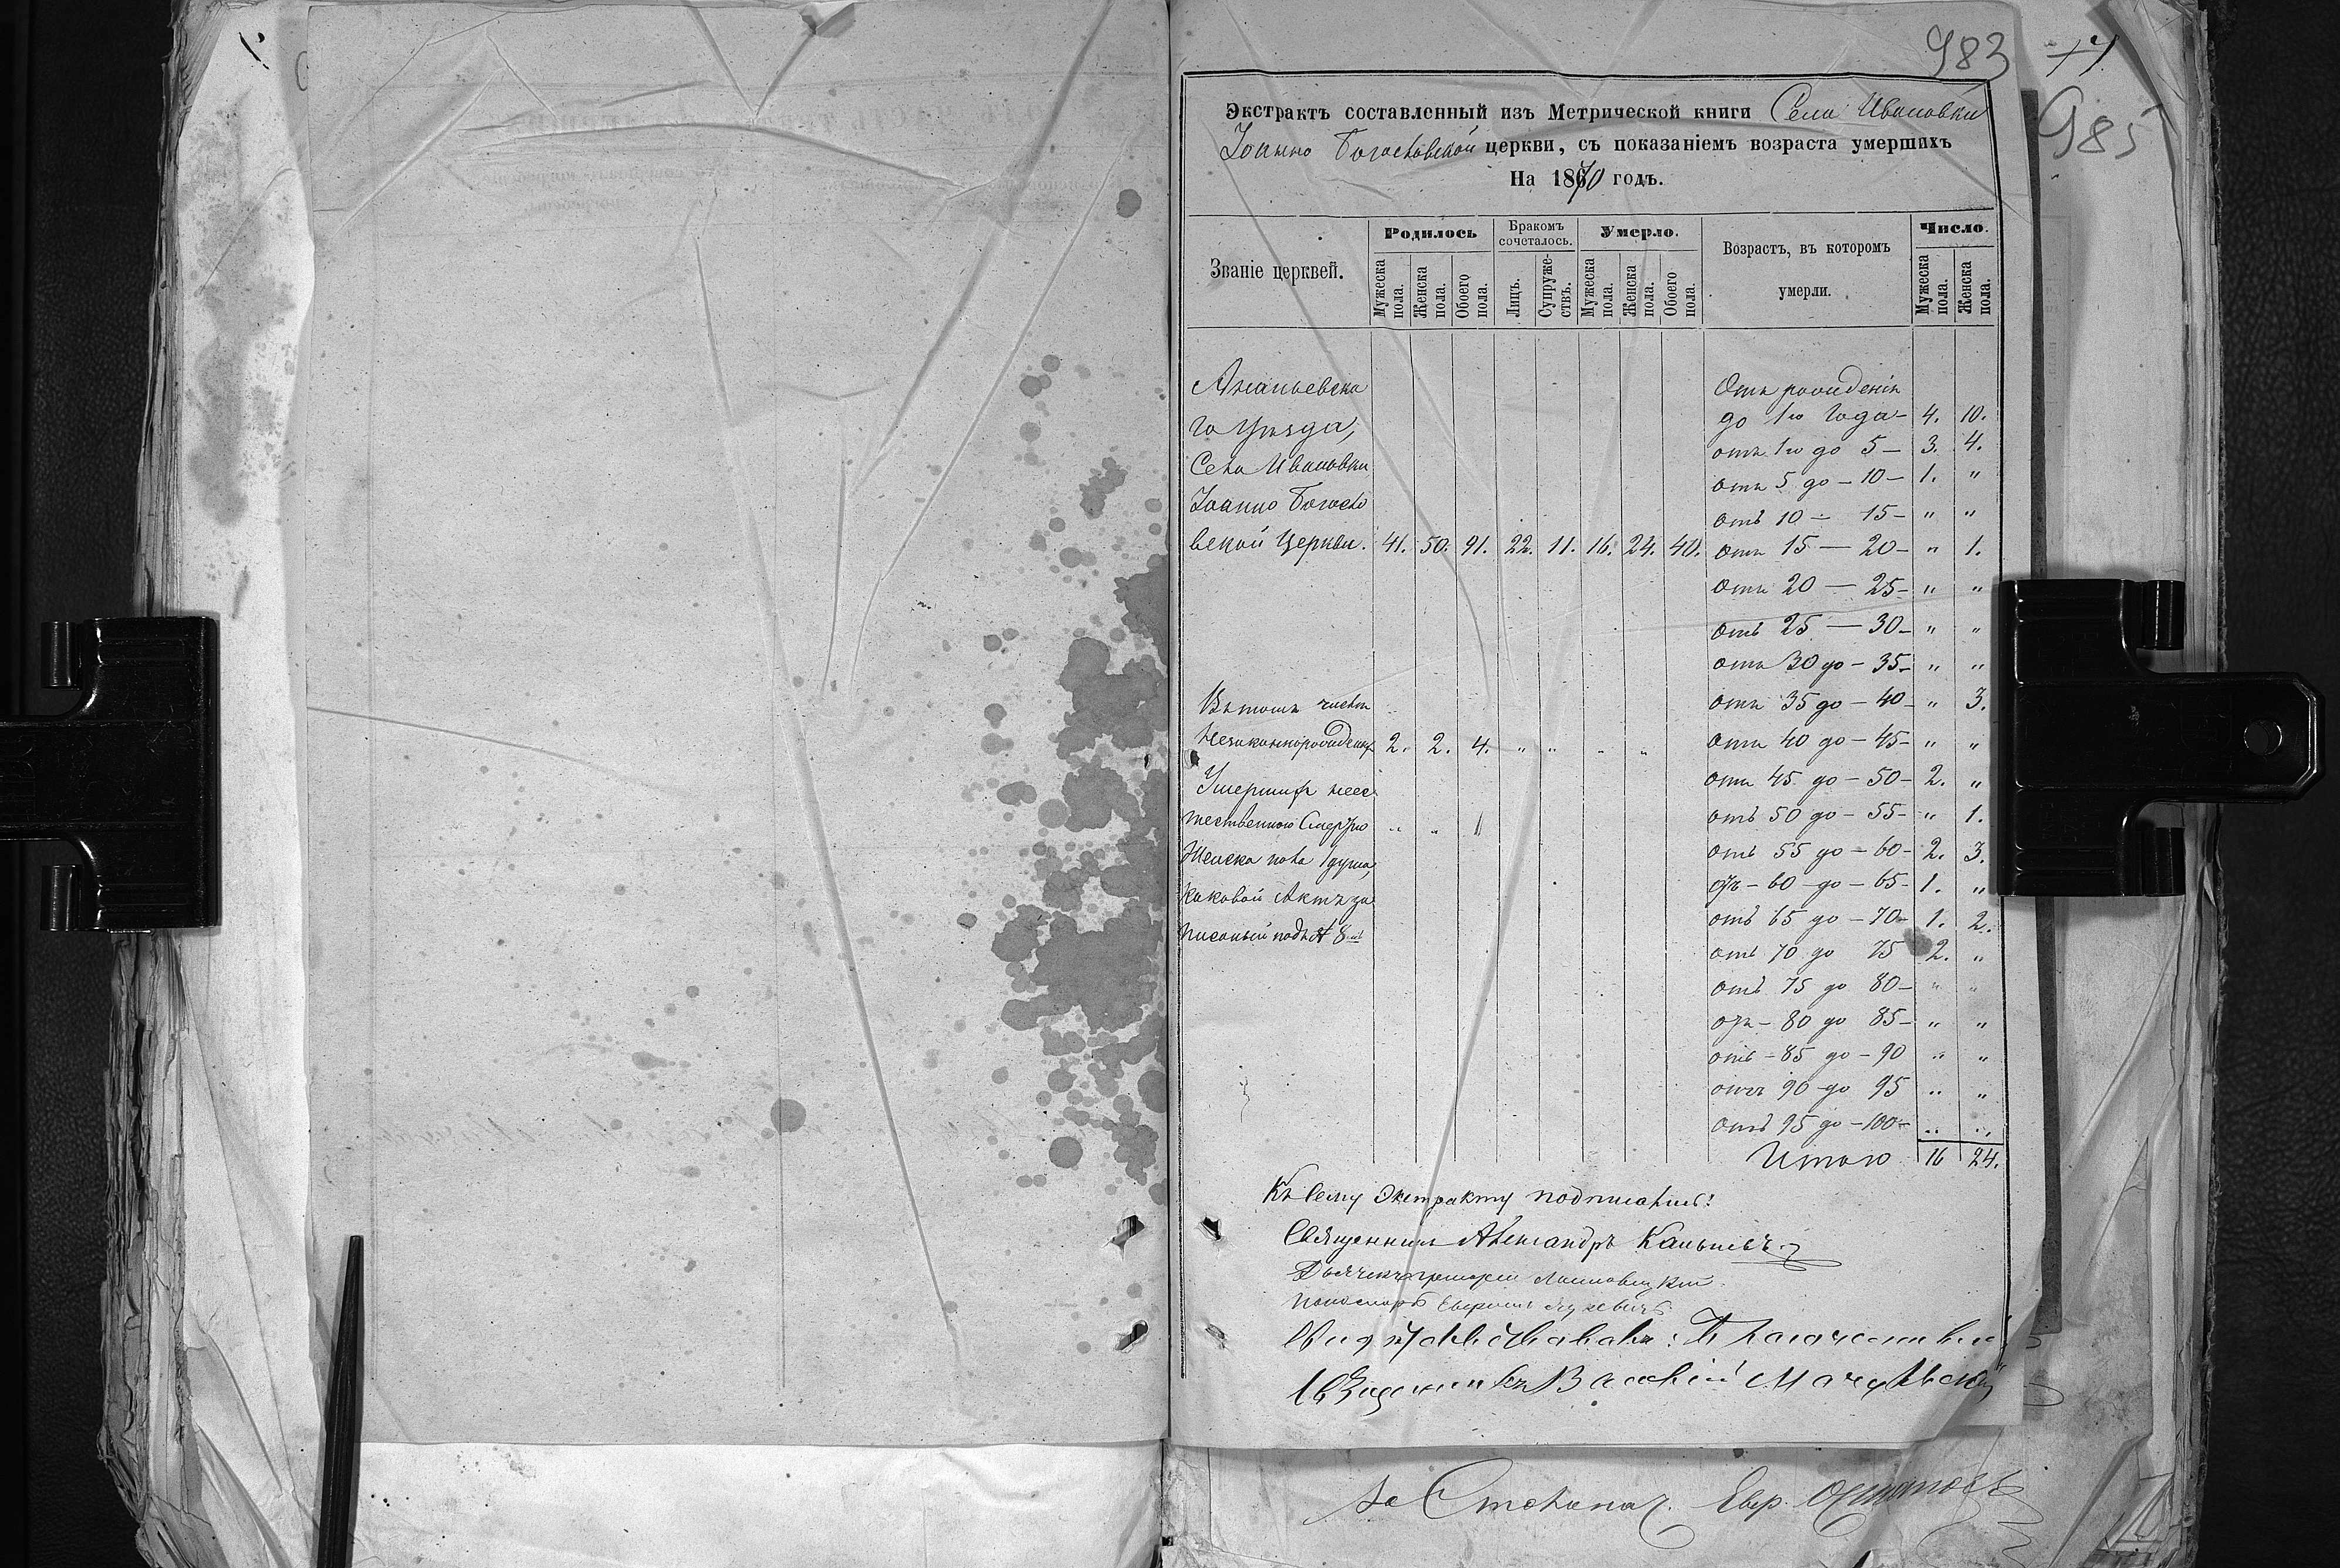 983
985
Экстрактъ составленный изъ Метрической книги Села Ивановки
Іоанно Богословской церкви, съ показаніемъ возраста умершихъ
На 1870 годъ.
Званіе церквей.
Родилось
Бракомъ сочеталось.
Умерло.
Возрастъ, въ которомъ умерли.
Число.
Мужеска пола.
Женска пола.
Обоего пола.
Лицъ.
Супружествъ.
Мужеска пола.
Женска пола.
Обоего пола.
Мужеска пола.
Женска пола.
Ананьевска
го Уѣзда,
Села Ивановки
Іоанно Богосло
вской Церкви. 41. 50. 91. 22. 11. 16. 24. 40.
Въ томъ числѣ
незаконнорожденныхъ 2. 2. 4. " " " "
Умершихъ неес
тественною Смертію " " "
Женска пола 1 душа,
каковой Актъ за
писанъ подъ № 8
Отъ рожденія
до 1го Года — 4. 10.
отъ 1го до 5 — 3. 4.
отъ 5 до — 10 — 1. "
отъ 10 — 15 — " "
отъ 15 — 20 — " 1.
отъ 20 — 25 — " "
отъ 25 — 30 — " "
отъ 30 до — 35 — " "
отъ 35 до — 40 — " 3.
отъ 40 до — 45 — " "
отъ 45 до — 50 — 2. "
отъ 50 до — 55 — " 1.
отъ 55 до — 60 — 2. 3.
отъ — 60 — до — 65 — 1. "
отъ 65 до — 70 — 1. 2.
отъ 70 до 75 2. "
отъ 75 до 80 — " "
отъ — 80 до 85 — " "
отъ — 85 до — 90 " "
отъ 90 до 95 " "
отъ 95 до — 100 — " "
Итого 16 24.
Къ сему Экстракту подписались:
Священникъ Александръ
Дьячекъ Григорій
Пономарь
Свидѣтельствовалъ: Благочинный
Священникъ Василій